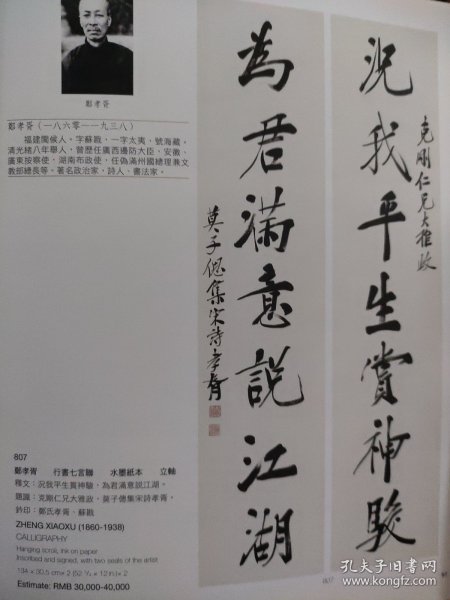 鄭孝胥
鄭孝胥(一八六零－一九三八)
福建閩候人。字蘇戡，一字太夷，號海藏。
清光緒八年舉人，曾歷任廣西邊防大臣、安徽、
廣東按察使，湖南布政使，任偽滿州國總理兼文
教部總長等。著名政治家，詩人、書法家。
況我平生賞神駿
克剛仁兄大雅政
為君滿意說江湖
莫子偲集宋詩孝胥
807
鄭孝胥 行書七言聯 水墨紙本 立軸
釋文：況我平生賞神駿，為君滿意說江湖。
題識：克剛仁兄大雅政，莫子偲集宋詩孝胥。
鈐印：鄭氏孝胥、蘇戡
ZHENG XIAOXU (1860-1938)
CALLIGRAPHY
Hanging scroll, ink on paper
Inscribed and signed, with two seals of the artist
134 × 30.5 cm× 2 (52 ³/₄ × 12 in.)× 2
Estimate: RMB 30,000-40,000
807
孔夫子旧书网